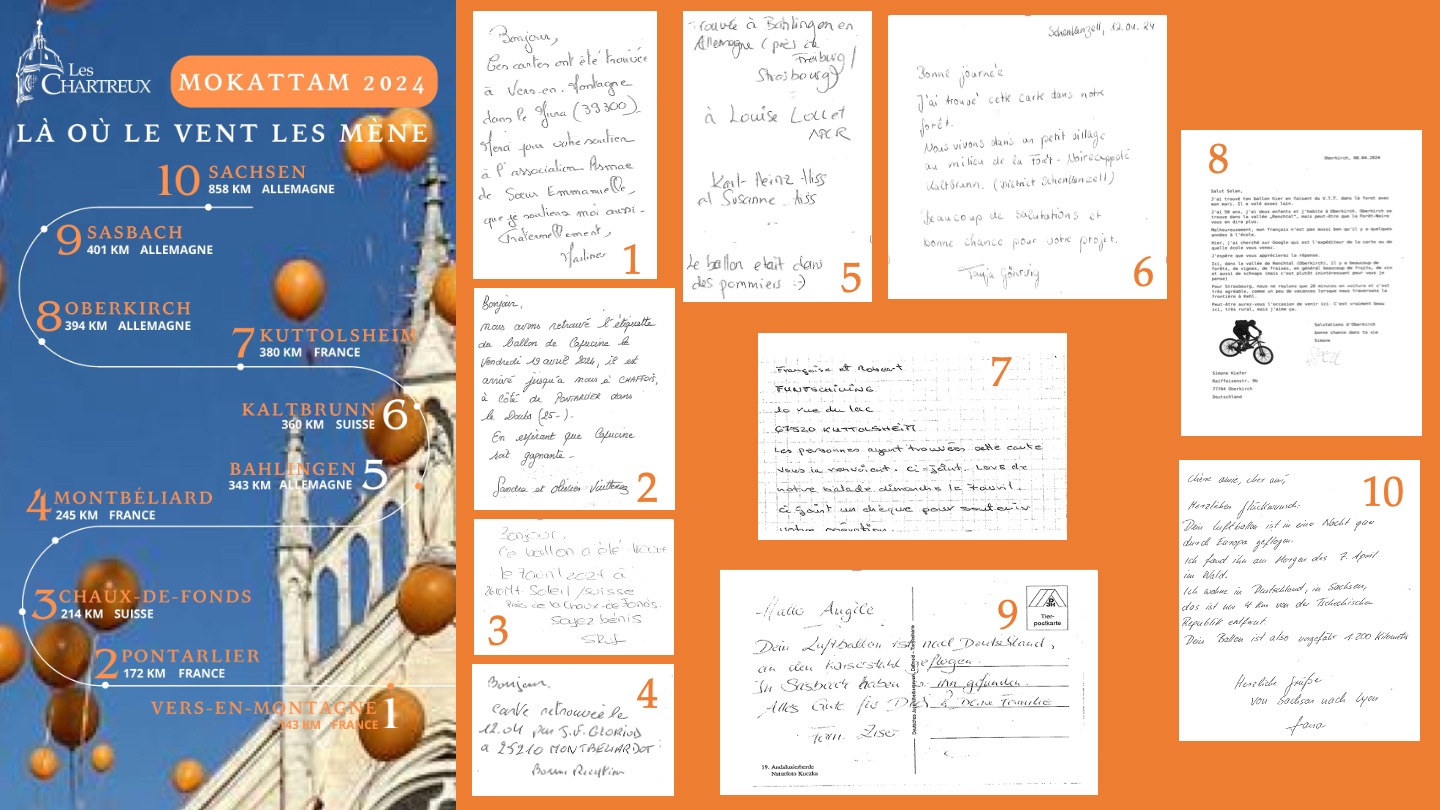 Les
CHARTREUX
MOKATTAM 2024
LÀ OÙ LE VENT LES MÈNE
10 SACHSEN
858 KM ALLEMAGNE
9 SASBACH
401 KM ALLEMAGNE
8 OBERKIRCH
394 KM ALLEMAGNE
7 KUTTOLSHEIM
380 KM FRANCE
KALTBRUNN 6
360 KM SUISSE
BAHLINGEN 5
343 KM ALLEMAGNE
4 MONTBÉLIARD
245 KM FRANCE
3 CHAUX-DE-FONDS
214 KM SUISSE
2 PONTARLIER
172 KM FRANCE
VERS-EN-MONTAGNE 1
143 KM FRANCE
Bonjour,
Ces cartes ont été trouvées
à Vers-en-Montagne
dans le Jura (39300)
Merci pour votre soutien
à l'association Asmae
de Sœur Emmanuelle,
que je soutiens moi aussi.
Fraternellement,
Martine
1
Bonjour,
nous avons retrouvé l'étiquette
du ballon de Capucine le
Vendredi 19 avril 2024, il est
arrivé jusqu'à nous à CHAFFOIS,
à côté de PONTARLIER dans
le Doubs (25-).
En espérant que Capucine
soit gagnante -
Sandra et Olivier
2
Bonjour,
Ce ballon a été trouvé
le 7 avril 2024 à
Mt-Soleil / suisse
Près de la Chaux-de-Fonds.
Soyez bénis
3
Bonjour
carte retrouvée le
12.04 par J.F. GLORIOD
a 25210 MONTBELIARDOT
Bonne Réception
4
Trouvée à Bahlingen en
Allemagne (près de
Freiburg /
Strasbourg)
à Louise Lollet
Karl-Heinz Hiss
et Susanne Hiss
le ballon etait dans
des pommiers :-)
5
Schenkenzell, 12.04.24
Bonne journée
J'ai trouvé cette carte dans notre
forêt.
Nous vivons dans un petit village
au milieu de la Forêt-Noire appelé
Kaltbrunn. (District Schenkenzell)
Beaucoup de salutations et
bonne chance pour votre projet.
Tanja
6
Françoise et Robert
FUNFSCHILLING
10 rue du lac
67520 KUTTOLSHEIM
Les personnes ayant trouvées cette carte
vous la renvoient. ci-joint. Lors de
notre balade dimanche le 7 avril.
ci joint un chèque pour soutenir
votre opération.
7
8
Oberkirch, 08.04.2024
Salut Solan,
J'ai trouvé ton ballon hier en faisant du V.T.T. dans la foret avec
mon mari. Il a volé assez loin.
J'ai 50 ans, j'ai deux enfants et j'habite à Oberkirch. Oberkirch se
trouve dans la vallée „Renchtal", mais peut-être que la Forêt-Noire
vous en dira plus.
Malheureusement, mon français n'est pas aussi bien qu'il y a quelques
années à l'école.
Hier, j'ai cherché sur Google qui est l'expéditeur de la carte ou de
quelle école vous venez.
J'espère que vous apprécierez la réponse.
Ici, dans la vallée de Renchtal (Oberkirch), il y a beaucoup de
forêts, de vignes, de fraises, en général beaucoup de fruits, de vin
et aussi de schnaps (mais c'est plutôt inintéressant pour vous je
pense)
Pour Strasbourg, nous ne roulons que 20 minutes en voiture et c'est
très agréable, comme un peu de vacances lorsque nous traversons la
frontière à Kehl.
Peut-être aurez-vous l'occasion de venir ici. C'est vraiment beau
ici, très rural, mais j'aime ça.
Salutations d'Oberkirch
bonne chance dans ta vie
Simone
Simone Kiefer
Raiffeisenstr. 9b
77704 Oberkirch
Deutschland
9
Tier-
postkarte
Hallo Angèle
Dein Luftballon ist nach Deutschland,
an den Kaiserstuhl geflogen.
In Sasbach haben wir ihn gefunden.
Alles Gute für Dich & Deine Familie
Fam. Ziser
19. Andalusierherde
Naturfoto Kuczka
10
Chère amie, cher ami,
Herzlichen Glückwunsch!
Dein Luftballon ist in einer Nacht quer
durch Europa geflogen.
Ich fand ihn am Morgen des 7. April
im Wald.
Ich wohne in Deutschland, in Sachsen,
das ist nur 4 km von der Tschechischen
Republik entfernt.
Dein Ballon ist also ungefähr 1.200 Kilometer
Herzliche Grüße
von Sachsen nach Lyon